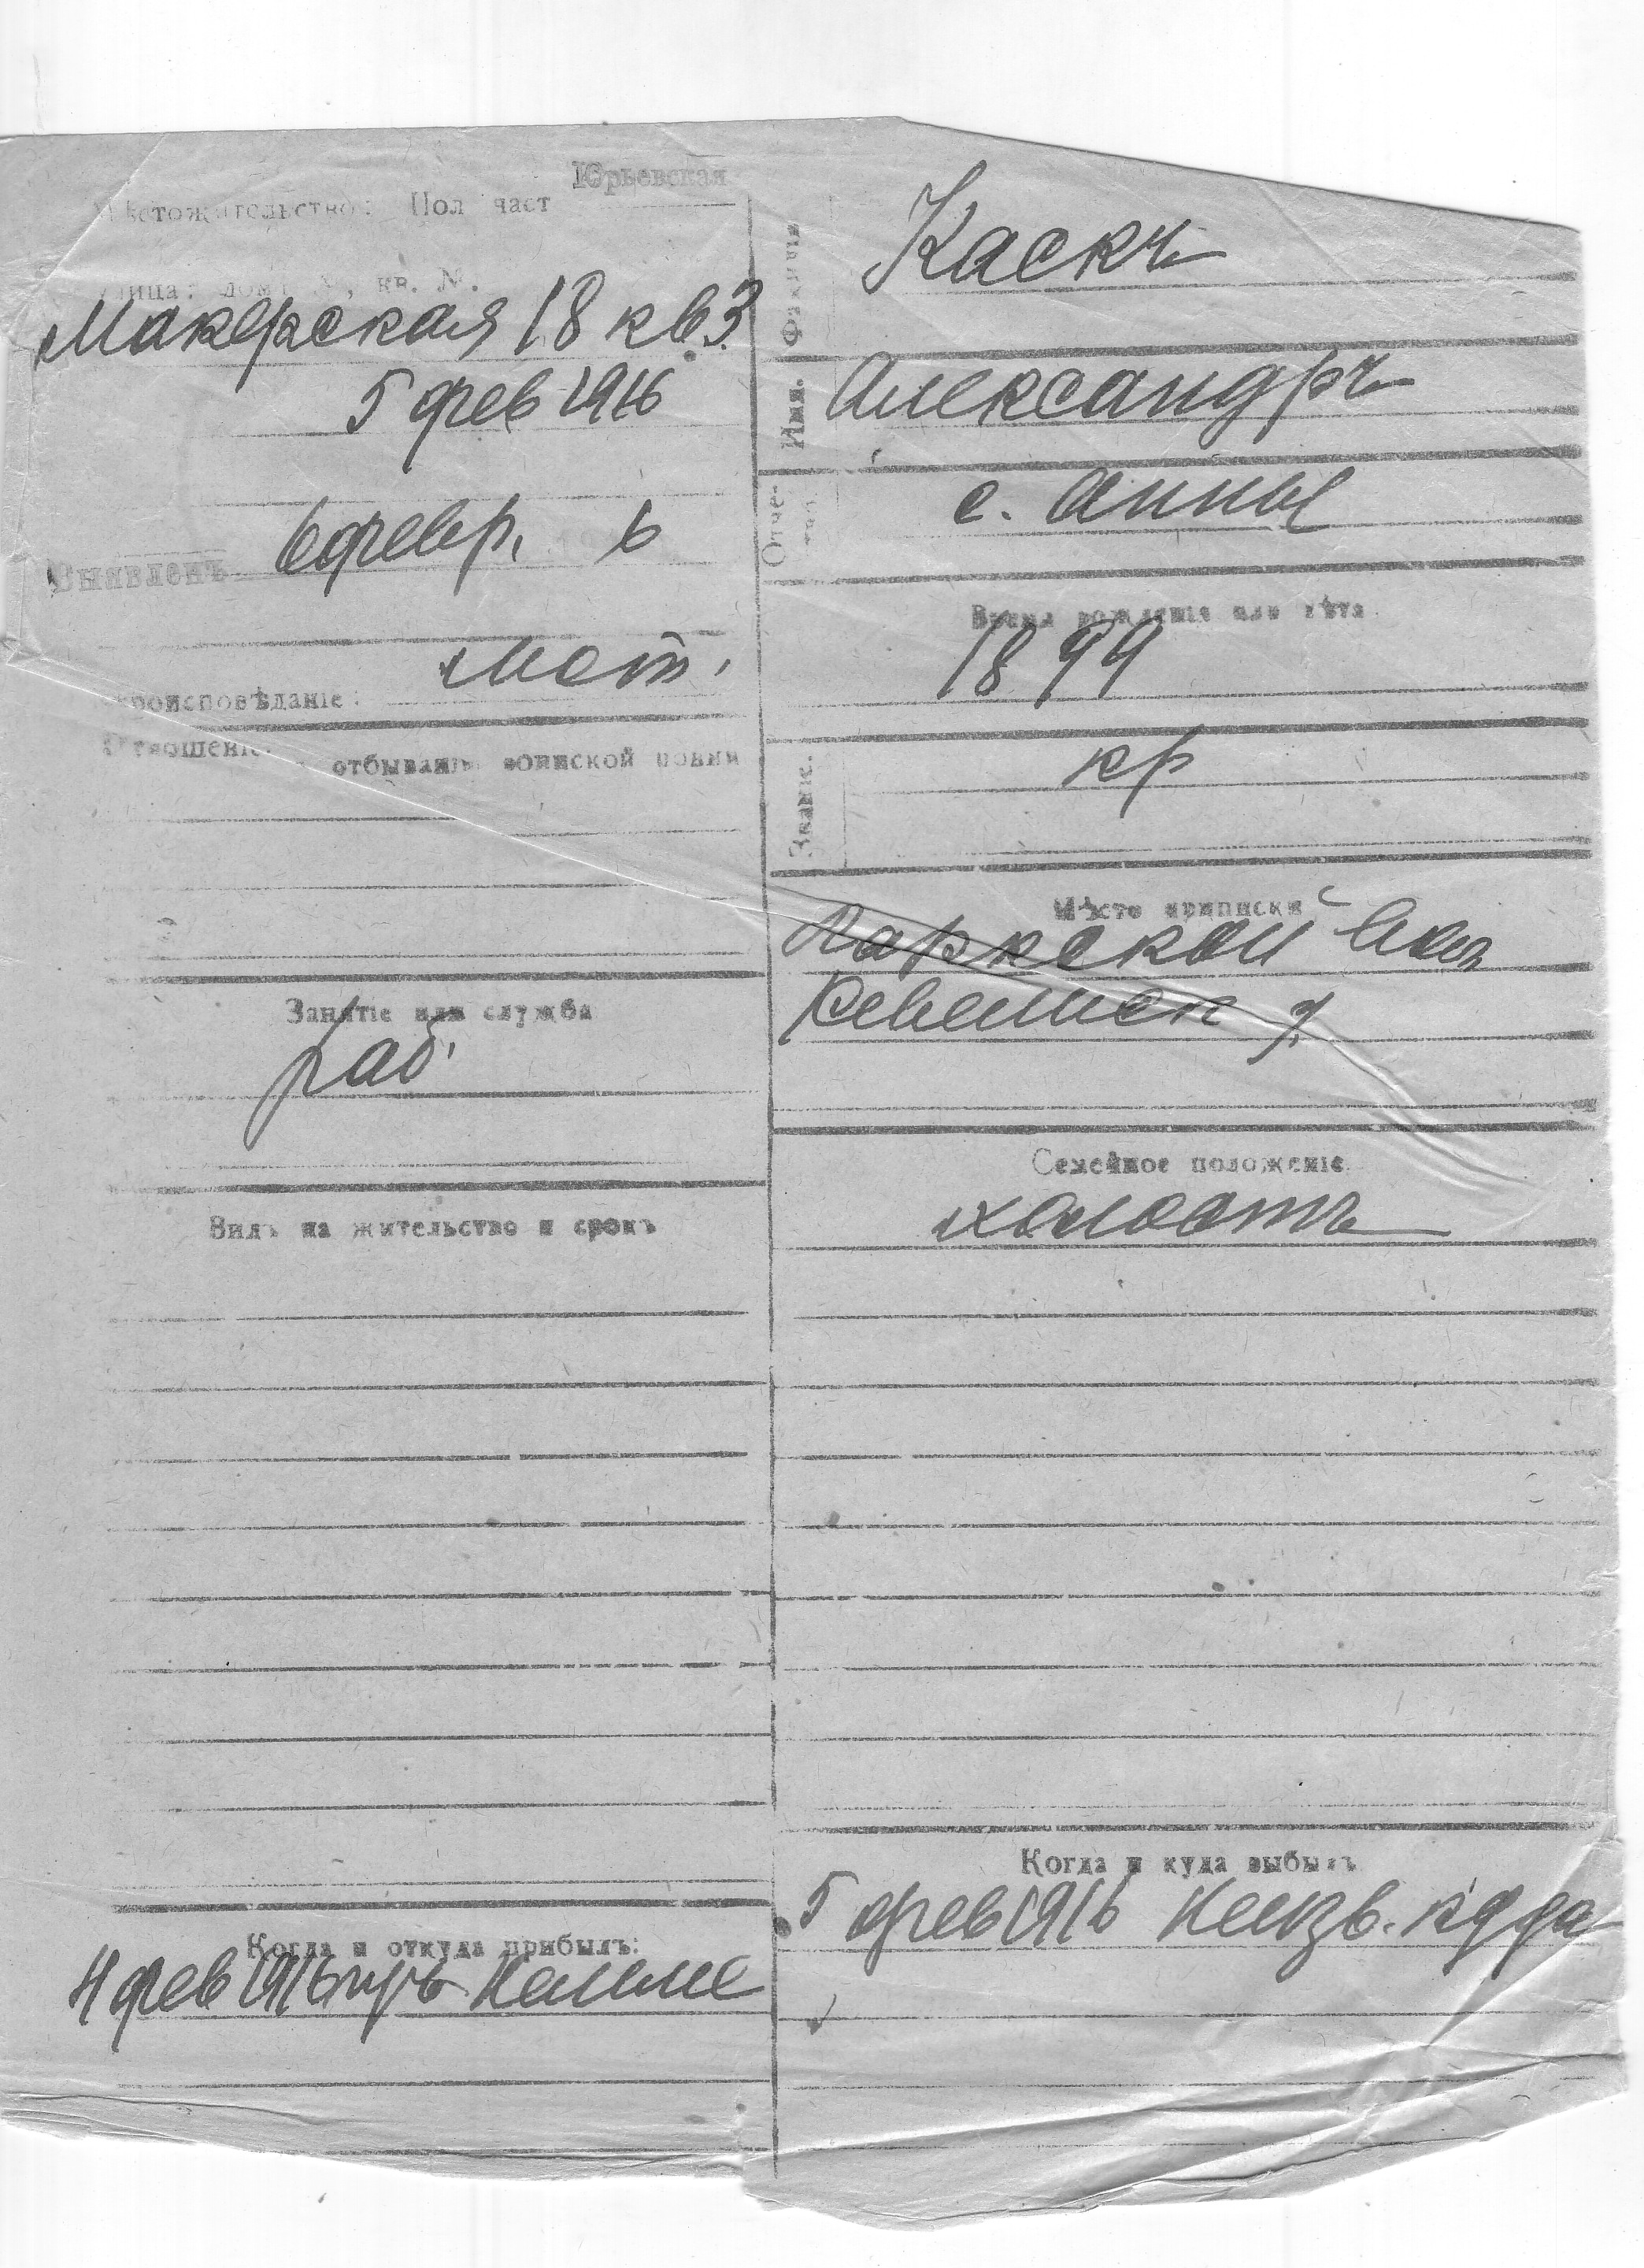 Юрьевская
Мѣстожительство: Пол част
улица: домъ №, кв. №.
18 кв 3.
5 фев 1916
Выявленъ 6 февр. 6
Вѣроисповѣданіе: лют.
Отношеніе отбыванію воинской повин
Занятіе или служба
раб.
Видъ на жительство и срокъ
Когда и откуда прибылъ:
4 фев 1916
Фамилія Каскъ
Имя. Александръ
Отчество с. Анны
Время рожденія или лѣта
1894
Званіе. кр
Мѣсто приписки
вол
Ревельск у.
Семейное положеніе
холостъ
Когда и куда выбылъ
5 фев 1916 Неизв. куда